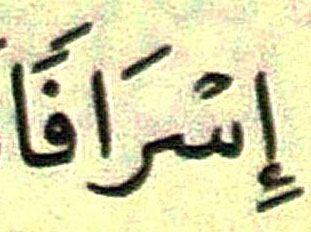 إِسْرَافًا